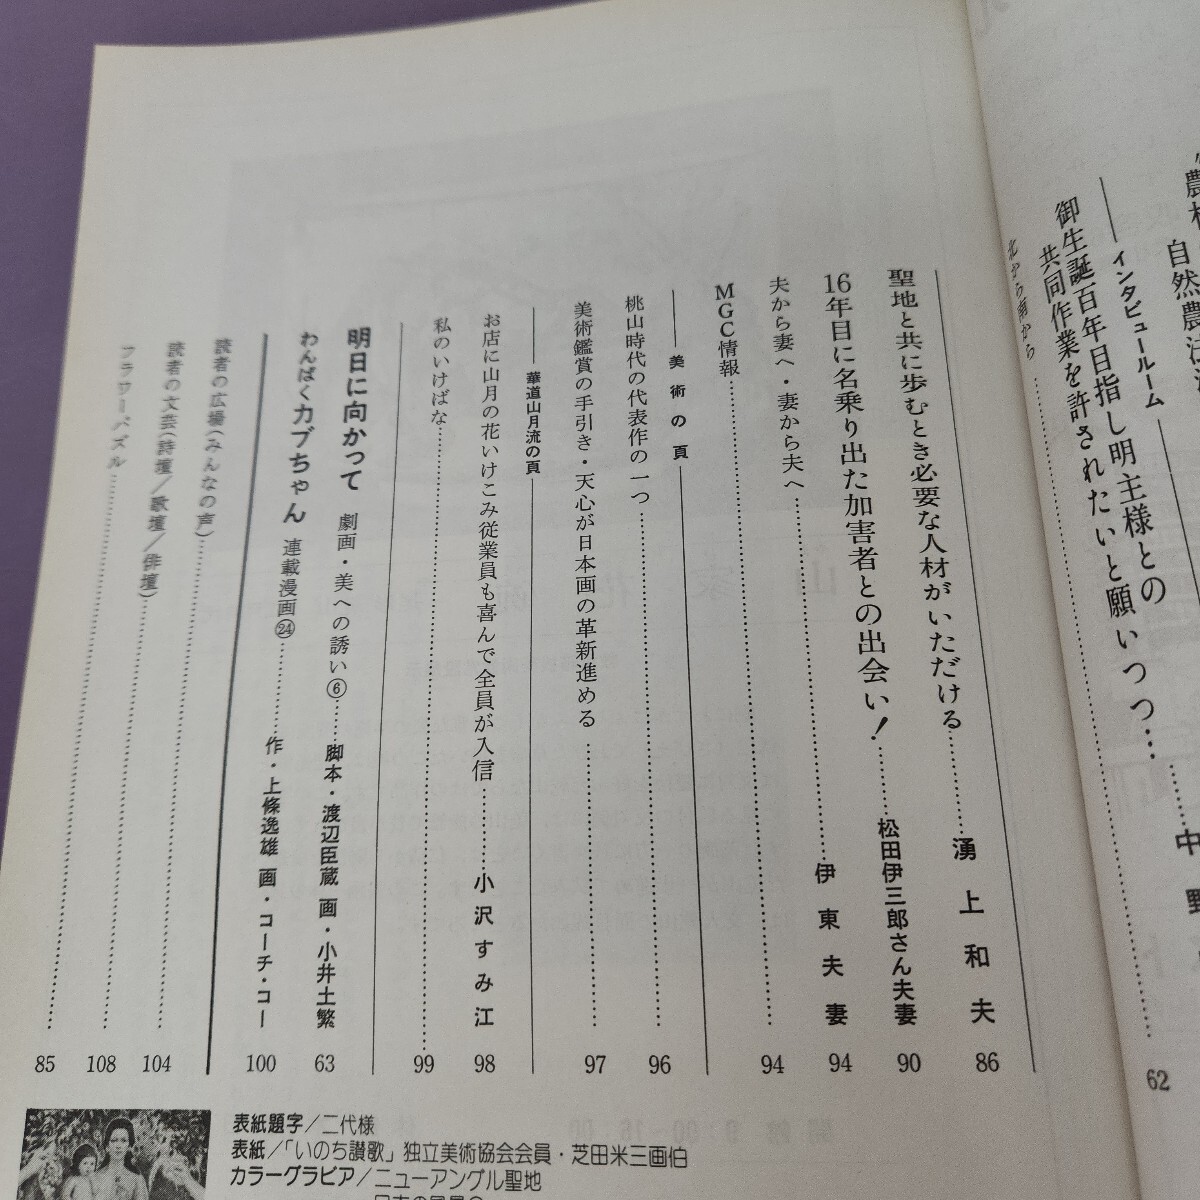 自然農法
インタビュールーム
御生誕百年目指し明主様との
共同作業を許されたいと願いつつ…………中野
62
北から南から…………
聖地と共に歩むとき必要な人材がいただける…………湧上和夫 86
16年目に名乗り出た加害者との出会い！…………松田伊三郎さん夫妻 90
夫から妻へ・妻から夫へ…………伊東夫妻 94
MGC情報…………94
美術の頁
桃山時代の代表作の一つ…………96
美術鑑賞の手引き・天心が日本画の革新進める…………97
華道山月流の頁
お店に山月の花いけこみ従業員も喜んで全員が入信…………小沢すみ江 98
私のいけばな…………99
明日に向かって 劇画・美への誘い⑥……脚本・渡辺臣蔵 画・小井土繁 63
わんぱくカブちゃん 連載漫画㉔…………作・上條逸雄 画・コーチ・コー 100
読者の広場(みんなの声)…………104
読者の文芸(詩壇／歌壇／俳壇)…………108
フラワーパズル…………85
表紙題字／二代様
表紙／「いのち讃歌」独立美術協会会員・芝田米三画伯
カラーグラビア／ニューアングル聖地